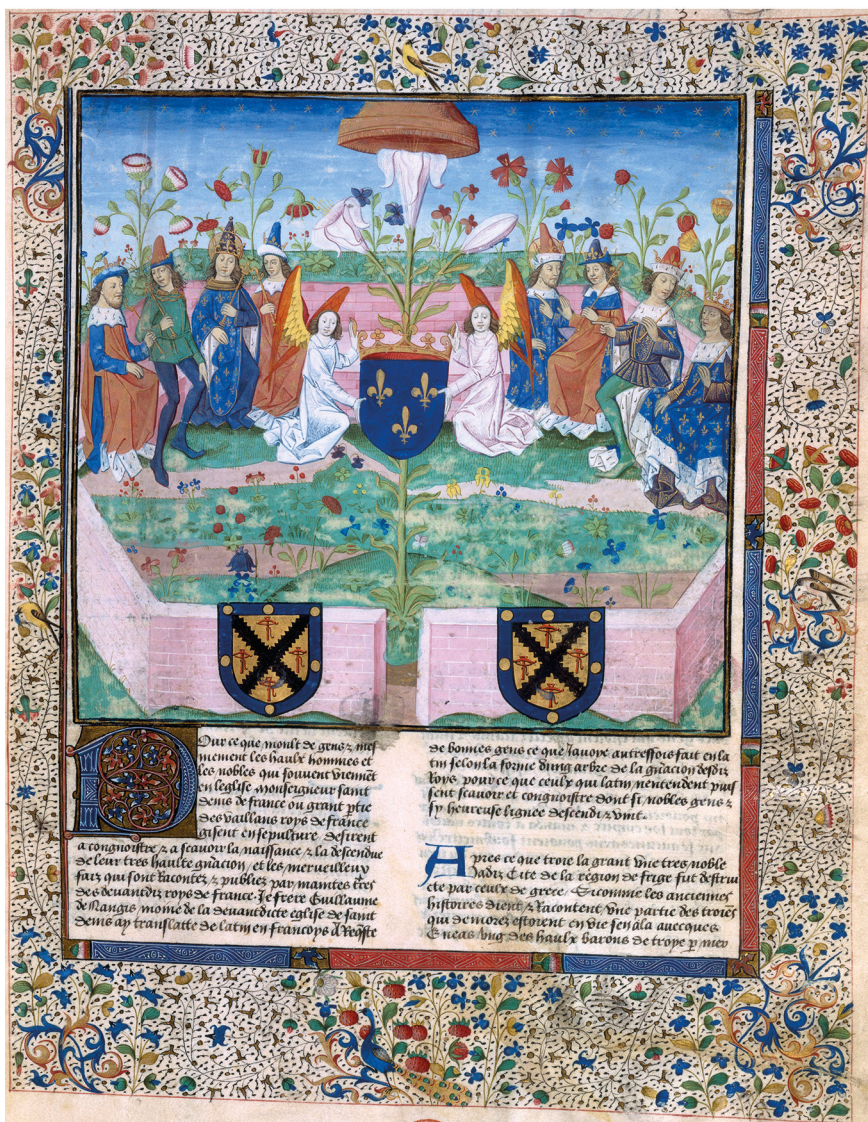 Pour ce que moult de gens & mes
mement les haulx hommes et
les nobles qui souvent viennēt
en leglise monseigneur saint
denis de france ou grant ptie
des vaillans roys de france
gisent en sepulture desirent
a congnoistre & a scavoir la naissance & la descendue
de leur tres haulte gnacion et les merveilleux
faiz qui sont racontez & publiez par maintes t̄res
des devandiz roys de france Je frere Guillaume
de Nangis moine de la devandicte eglise de saint
denis ay translatte de latin en francoys a
de bonnes gens ce que Javoye autreffois fait en la
tin selon la forme dung arbre de la gnacion desdiz
Roys pour ce que ceulx qui latin nentendent puis
sent scavoir et congnoistre dont si nobles gens &
sy heureuse lignee descendi & vint
Apres ce que troie la grant Une tres noble
Jadiz Cite de la region de frige fut destrui
cte par ceulx de grece Sicomme les anciennes
histoires dient & Racontent Une partie des troies
qui demorez estoient en vie sen ala avecques
Eneas Ung des haulx barons de troye p mer